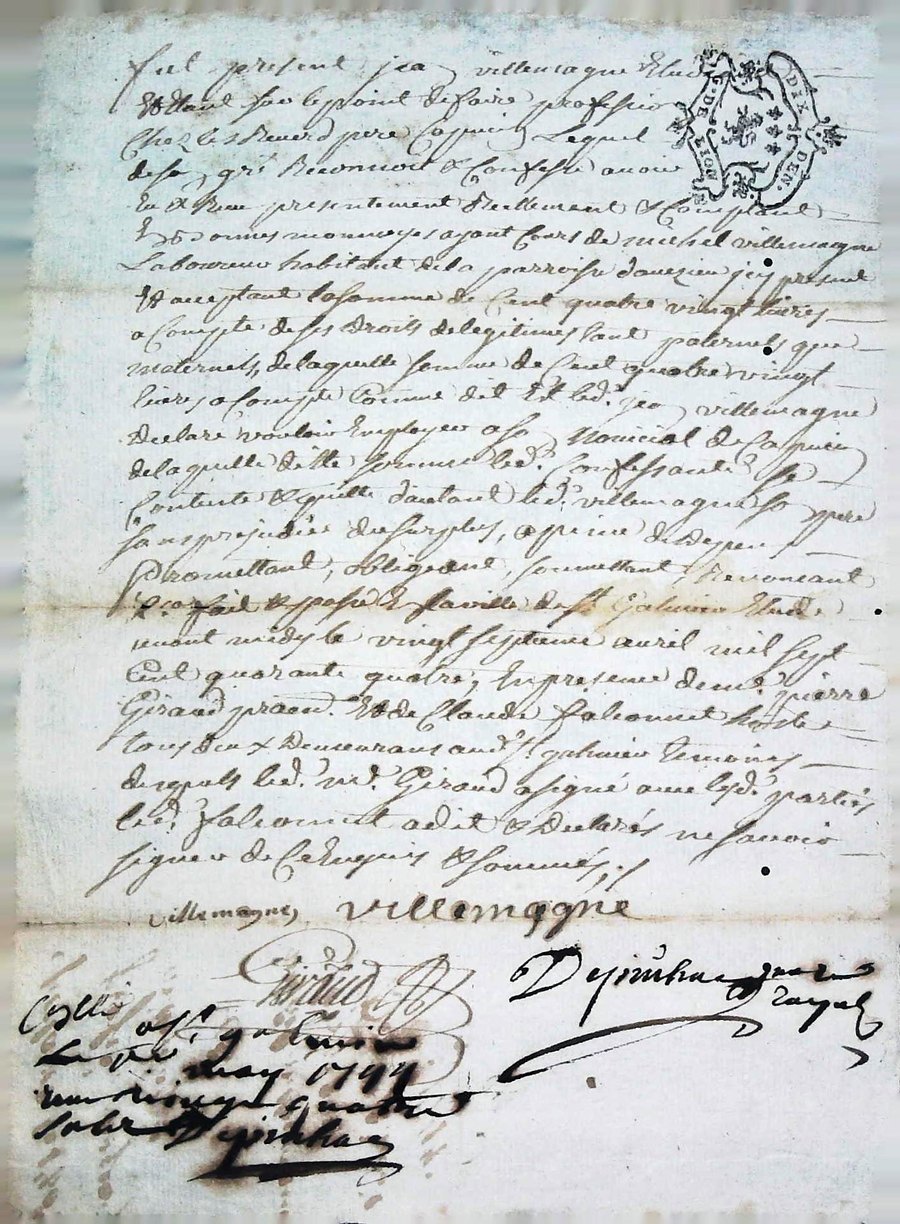 fut present jean villemagne Etud
Etant sur le point de faire profession
Chez les Reverd pere Capucin Lequel
de son gré Reconnoit & Confesse avoir
Eu & Receu presentement Reellement & Comptant
En bonnes monnoyes ayant Cours de michel villemagne
Laboureur habitant de la parroisse d'aveizieu jcy present
Et acceptant la somme de Cent quatre vingt livres
a Compte de ses Droits de legitimes tant paternels que
maternels, de laquelle somme de Cent quatre vingt
livres a Compte Comme dit Est led. jean villemagne
Declare vouloir Employer a son Novicial de Capucin
de laquelle ditte somme led. Confessant se
Contente & quitte d'autant led. villemagne son pere
sans prejudice du surplus, a peine de Depens
Promettant, obligeant, soumettant, Renoncant
fait & passé En la ville de St Galmier Etude
avant midy le vingt septieme avril mil sept
Cent quarante quatre, En presence de me. pierre
Giraud praticn. Et de Claude falconnet hoste
tous deux Demeurans aud. St. galmier temoins
desquels led. me. Giraud a signé avec lesd. parties
led. falconnet a dit & Declaré ne savoir
signer de Ce Enquis & sommés ./.
villemagne villemagne
Giraud
Conllé a St galmier
Le may 1744
sols
G. DE LION
DIX DEN.